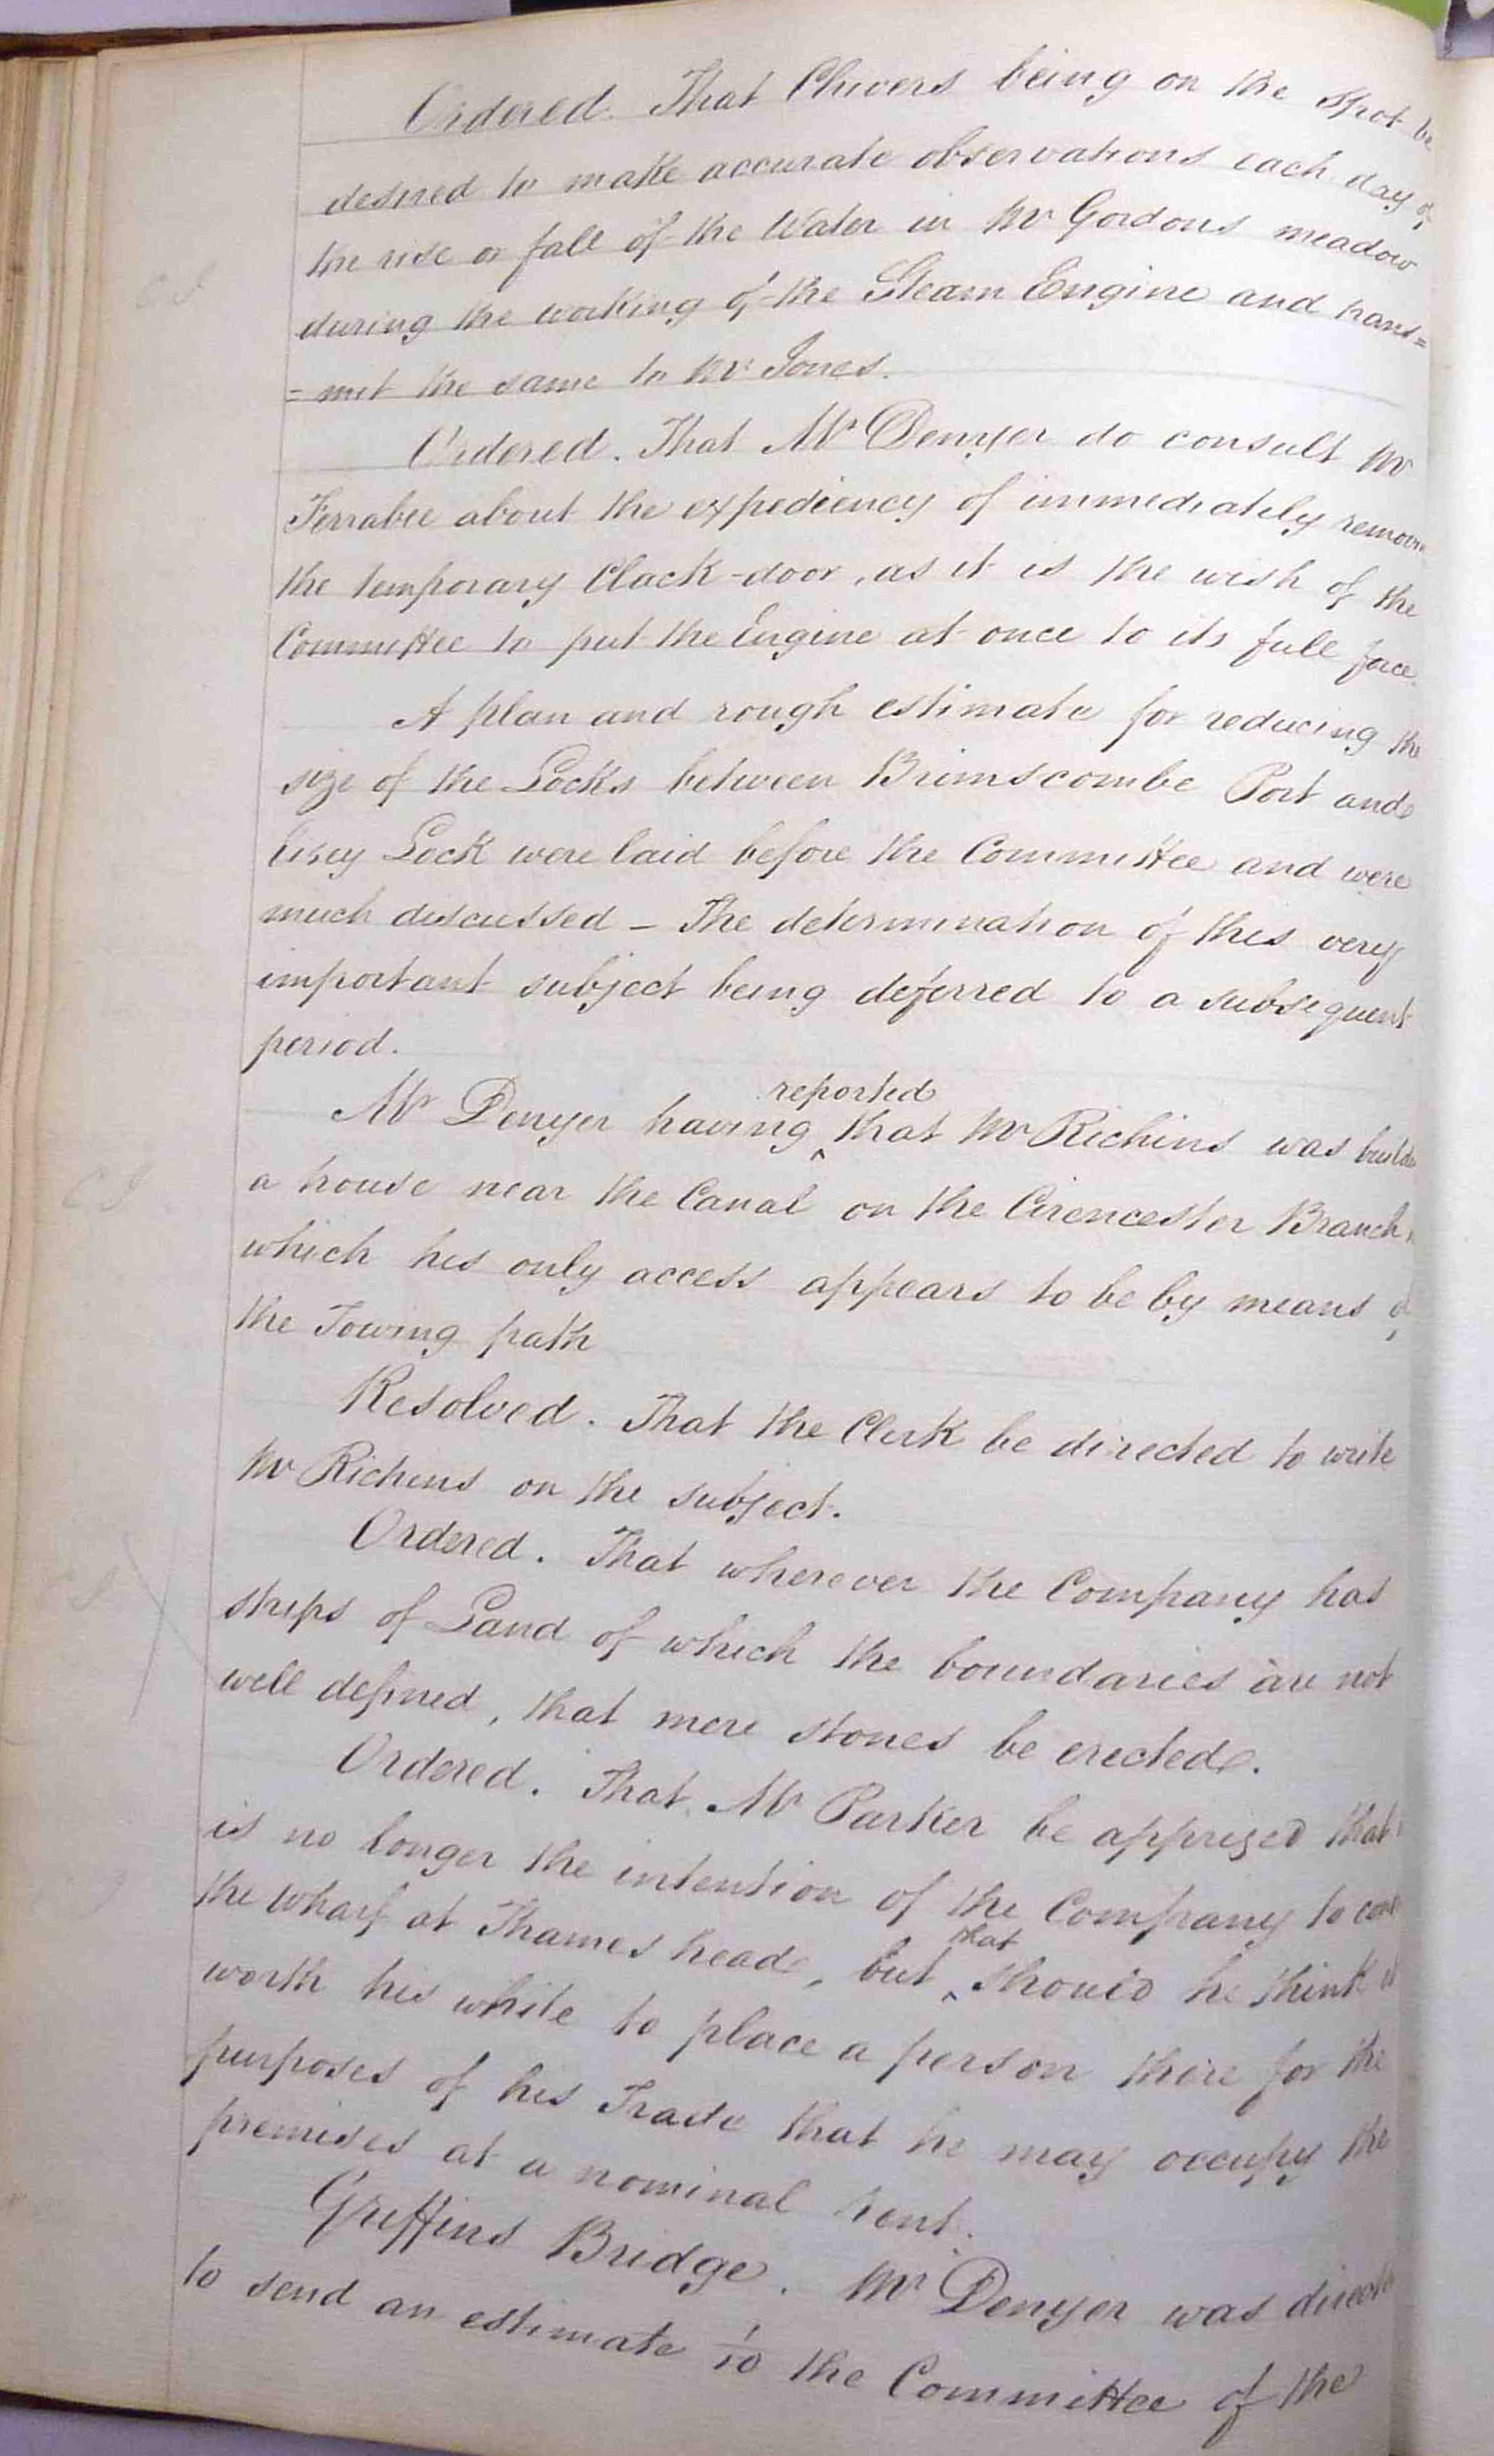 Ordered. That Chivers being on the spot be
desired to make accurate observations each day of
the rise or fall of the Water in Mr Gordons meadow
during the working of the Steam Engine and trans=
=mit the same to Mr Jones.
Ordered. That Mr Denyer do consult Mr
Ferrabee about the expediency of immediately removin
the temporary Clack-door, as it is the wish of the
Committee to put the Engine at once to its full force.
A plan and rough estimate for reducing the
size of the Locks between Brimscombe Port and
Cisey Lock were laid before the Committee and were
much discussed – The determination of this very
important subject being deferred to a subsequent
period.
reported
Mr Denyer having ^ that Mr Richins was build
CJ
a house near the Canal on the Cirencester Branch
which his only access appears to be by means of
the Towing path
Resolved. That the Clerk be directed to write
Mr Richins on the subject.
Ordered. That wherever the Company has
strips of Land of which the boundaries are not
well defined, that mere stones be erected.
Ordered. That Mr Parker be apprized that
is no longer the intention of the Company to
that
the wharf at Thames head, but ^ should he think it
worth his while to place a person there for the
purposes of his Trade that he may occupy the
premises at a nominal rent.
Griffins Bridge. Mr Denyer was direct
to send an estimate 1/10 the Committee of the